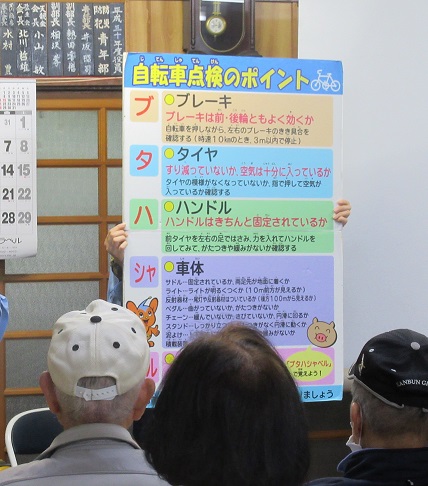 平成三十年度役員
防犯部 青年部
自転車点検のポイント
じてんしゃてんけん
ブ
●ブレーキ
ブレーキは前・後輪ともよく効くか
自転車を押しながら、左右のブレーキのきき具合を
確認する(時速10㎞のとき、3m以内で停止)
タ
●タイヤ
すり減っていないか、空気は十分に入っているか
タイヤの模様がなくなっていないか、指で押して空気が
入っているか確認する
ハ
●ハンドル
ハンドルはきちんと固定されているか
前タイヤを左右の足ではさみ、力を入れてハンドルを
回してみて、がたつきや緩みがないか確認する
シャ
●車体
サドル…固定されているか、両足先が地面に着くか
ライト…ライトが明るくつくか(10m前方が見えるか)
反射器材…尾灯や反射器材はついているか(後方100mから見えるか)
ペダル…曲がっていないか、がたつきがないか
チェーン…緩んでいないか、さびていないか、円滑に回るか
スタンド…しっかり立つ
つきがなく円滑に動くか
泥よけ
緩みがないか
ル
「ブタハシャベル」
で覚えよう!
ましょう
31
1
7
8
14
15
21
22
28
29